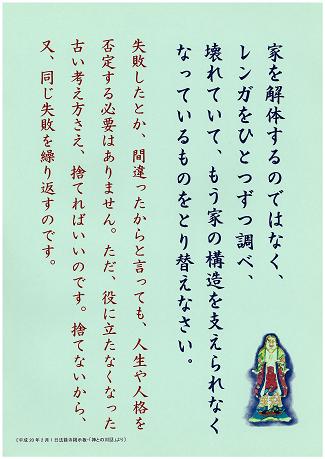 家を解体するのではなく、
レンガをひとつずつ調べ、
壊れていて、もう家の構造を支えられなく
なっているものをとり替えなさい。
失敗したとか、間違ったからと言っても、人生や人格を
否定する必要はありません。ただ、役に立たなくなった
古い考え方さえ、捨てればいいのです。捨てないから、
又、同じ失敗を繰り返すのです。
(平成20年2月1日法籍寺掲示板・「神との対話」より)